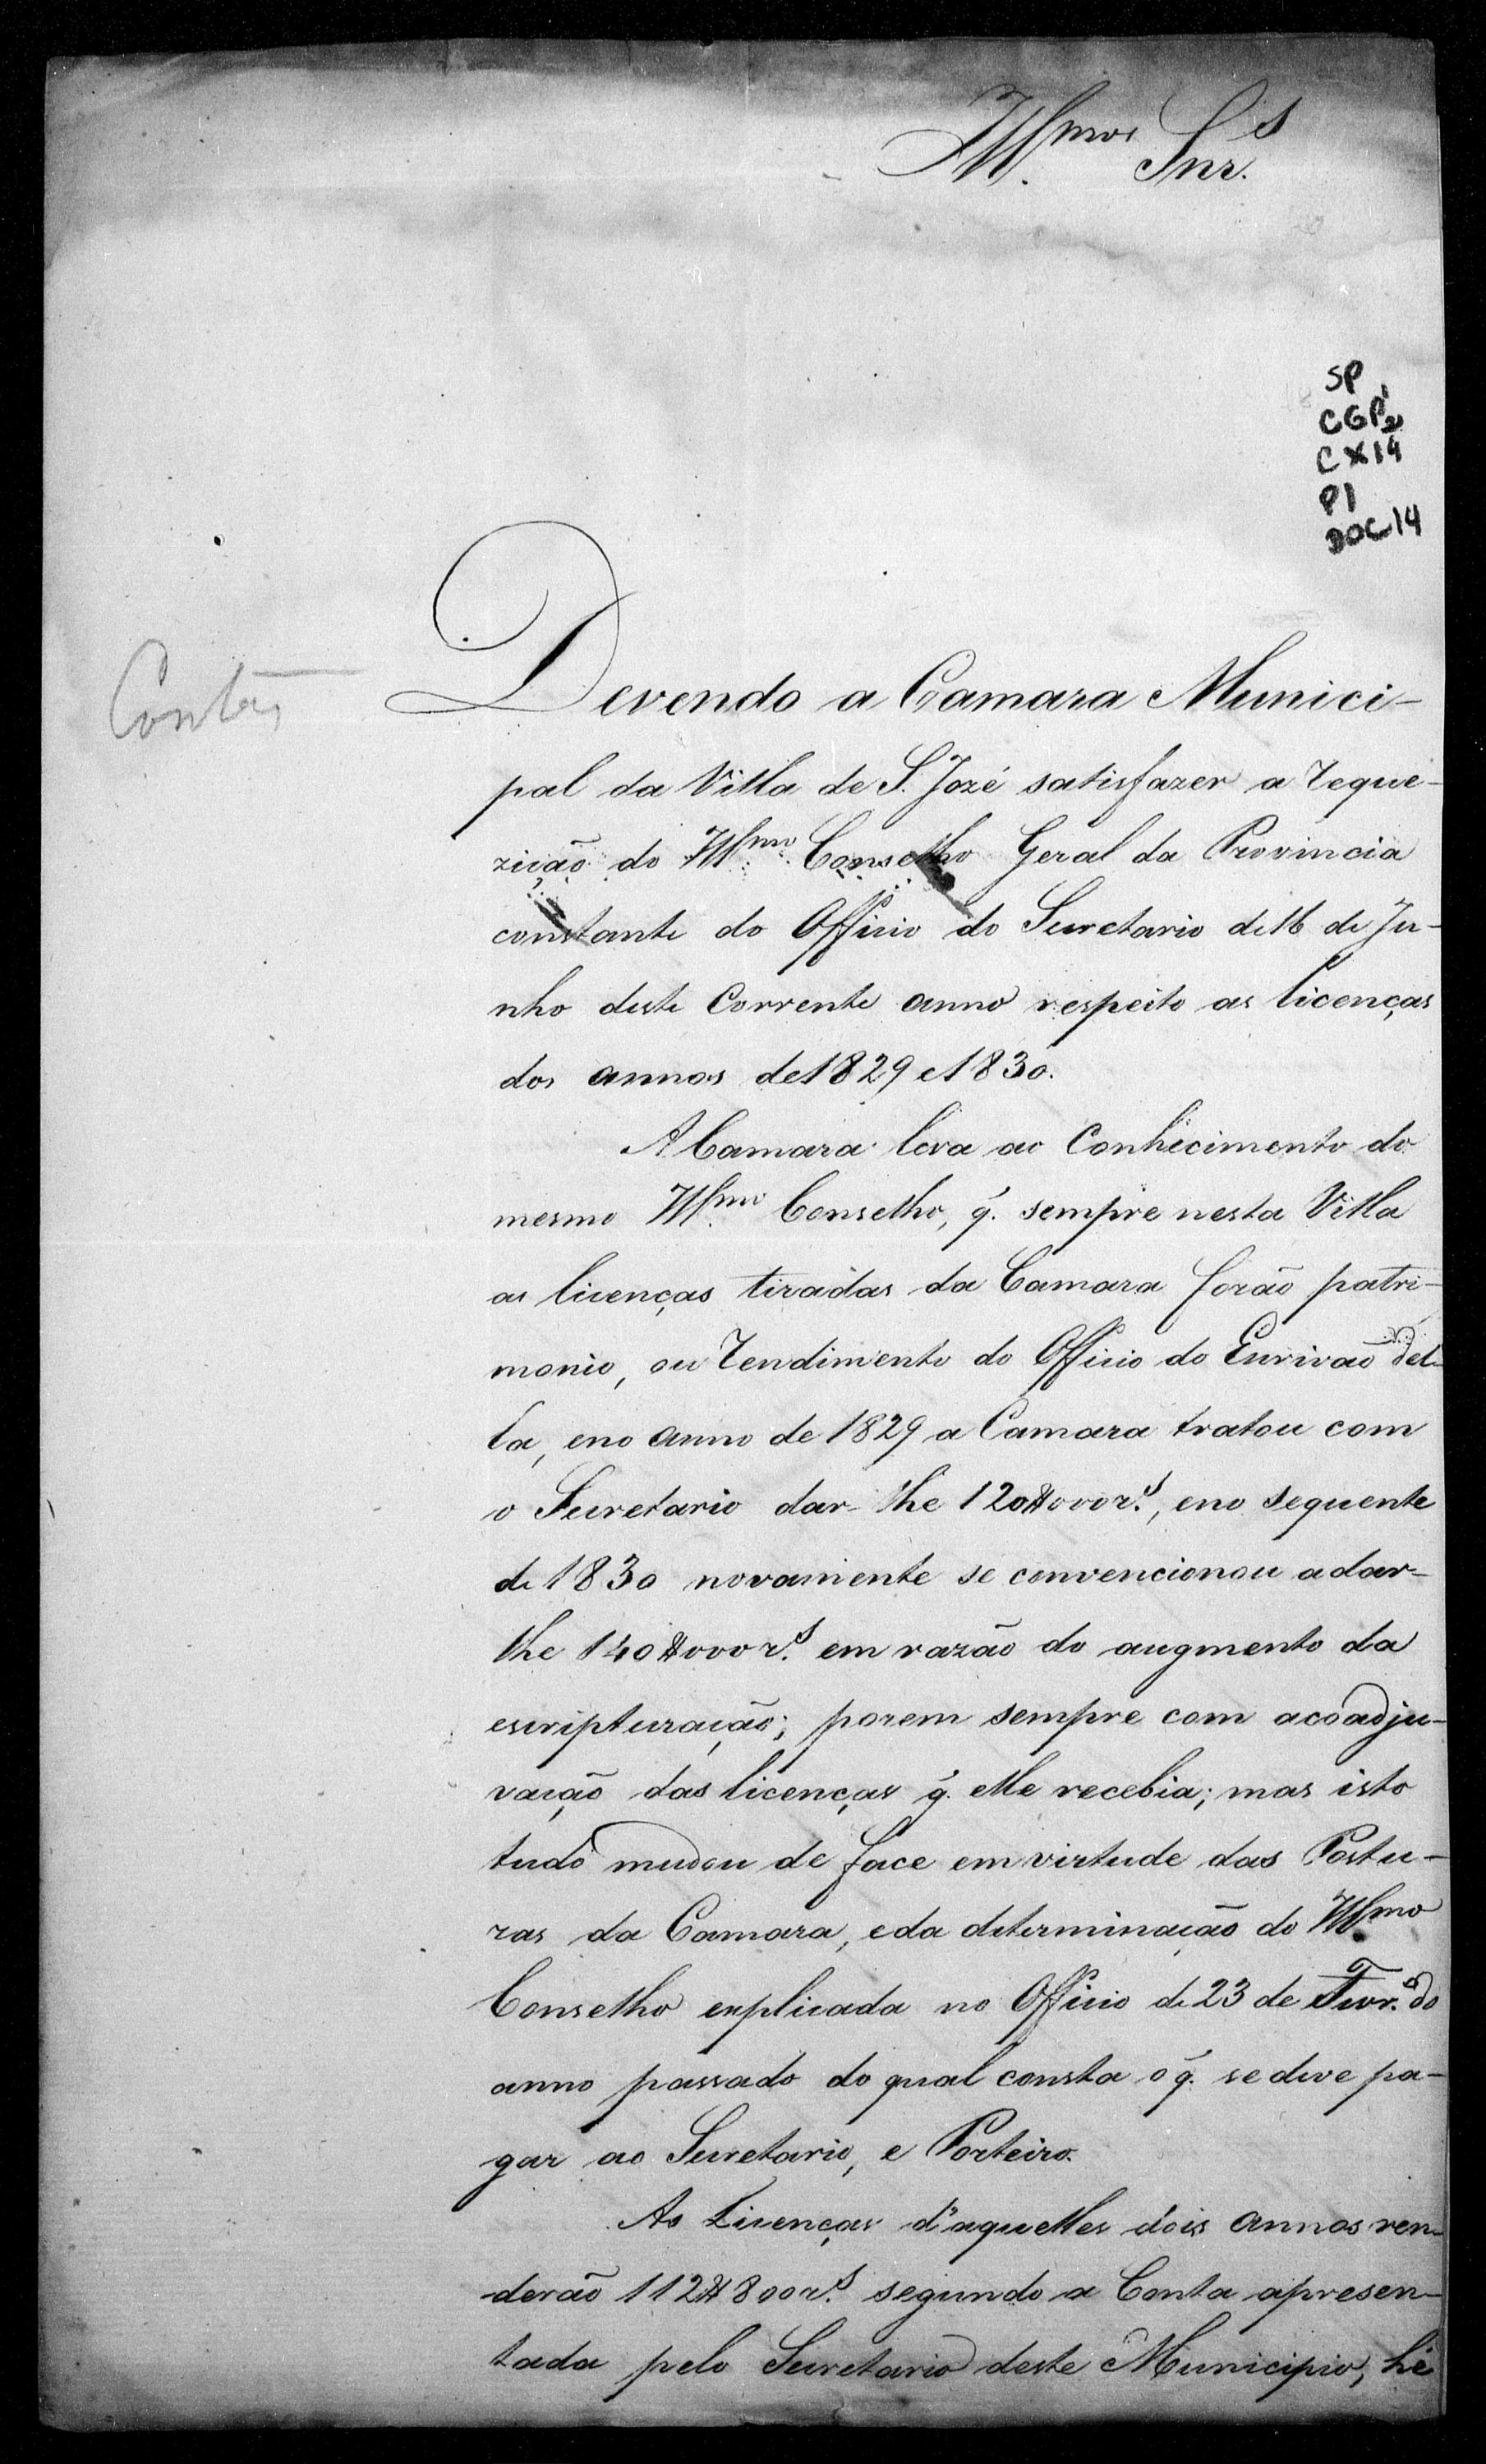 Illmos Snrs.
SP
CGP1.2
CX14
P1
DOC14
Contas
Devendo a Camara Munici-
pal da Villa de S. Jozé satisfazer a reque-
zição do Illmo. Conselho Geral da Provincia
constante do Officio do Secretario de 16 de Ju-
nho deste Corrente anno respeito as licenças
dos annos de 1829 e 1830.
A Camara leva ao Conhecimento do
mesmo Illmo. Conselho, q̃. sempre nesta Villa
as licenças tiradas da Camara forão patri-
monio, ou rendimento do Officio do Escrivão del-
la, e no anno de 1829 a Camara tratou com
o Secretario dar-lhe 120$000 rs., e no sequente
de 1830 novamente se convencionou a dar-
lhe 140$000 rs. em razão do augmento da
escripturação; porem sempre com a coadju-
vação das licenças q̃. elle recebia; mas isto
tudo mudou de face em virtude das Postu-
ras da Camara, e da determinação do Illmo.
Conselho explicada no Officio de 23 de Fevr.o do
anno passado do qual consta o q̃. se deve pa-
gar ao Secretario, e Porteiro.
As Licenças d'aquelles dois annos ren-
derão 112$800 rs. segundo a Conta apresen-
tada pelo Secretario deste Municipio, hé